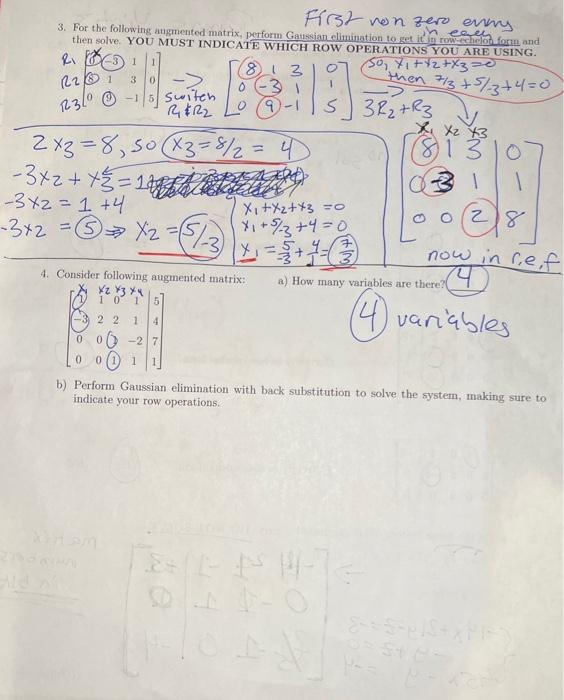 First non zero entry
in each
3. For the following augmented matrix, perform Gaussian elimination to get it in row-echelon form and
then solve. YOU MUST INDICATE WHICH ROW OPERATIONS YOU ARE USING.
R1 0 -3 1 1
R2 8 1 3 0
R3 0 9 -1 5
→ switch R1 & R2
8 1 3 0
0 -3 1 1
0 9 -1 5
3R2 + R3
So, x1 + x2 + x3 = 0
then 7/3 + 5/-3 + 4 = 0
x1 x2 x3
8 1 3 0
0 -3 1 1
0 0 2 8
now in r.e.f
2x3 = 8, so x3 = 8/2 = 4
-3x2 + x3 = 1
-3x2 = 1 + 4
-3x2 = 5 ⇒ x2 = 5/-3
x1 + x2 + x3 = 0
x1 + 5/-3 + 4 = 0
x1 = 5/3 + 4/1 = 7/3
4. Consider following augmented matrix: a) How many variables are there? 4
x1 x2 x3 x4
1 1 0 1 5
-3 2 2 1 4
0 0 1 -2 7
0 0 1 1 1
4 variables
b) Perform Gaussian elimination with back substitution to solve the system, making sure to
indicate your row operations.